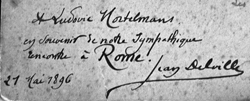 A Ludovic Mortelmans
en souvenir de notre sympathique
rencontre à Rome.
Jean Delville
21 Mai 1896